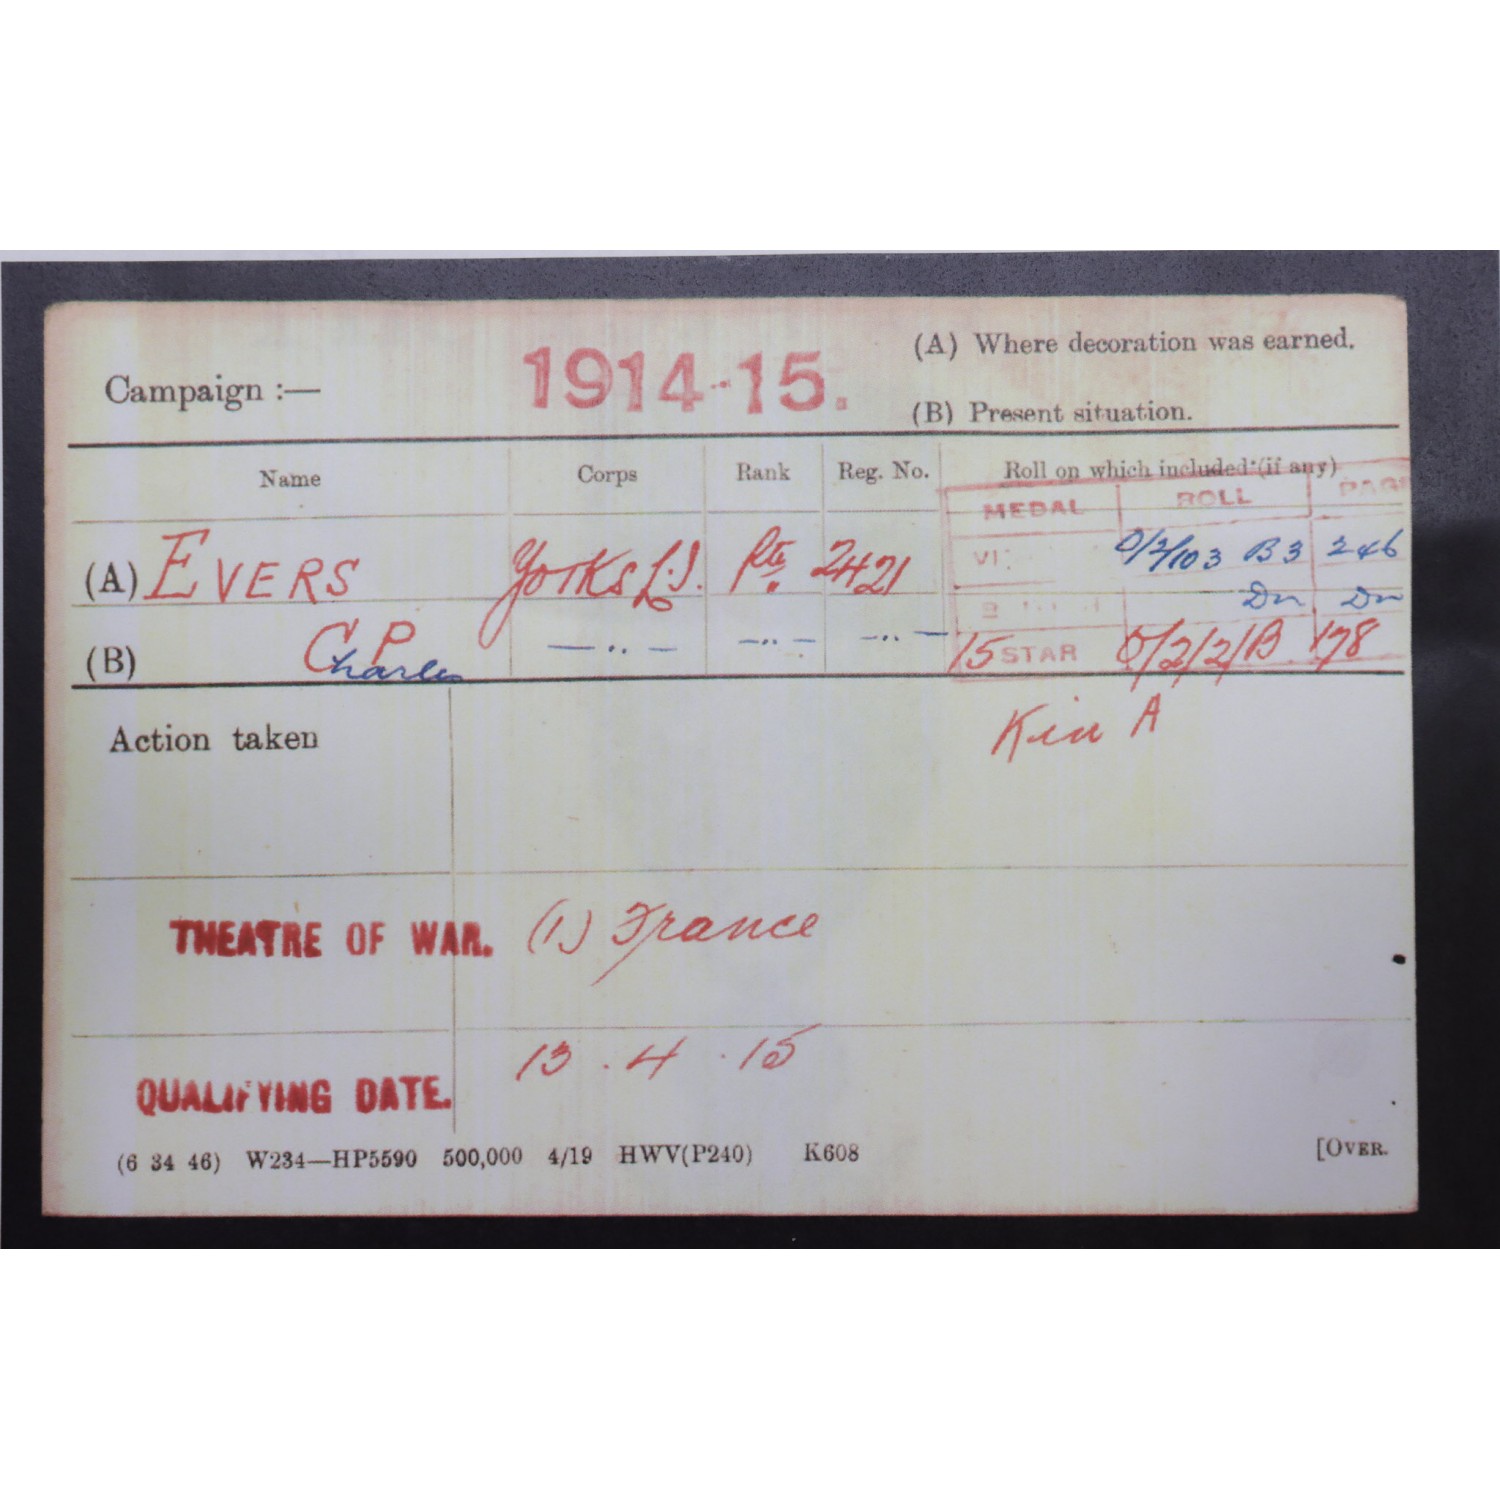 Campaign :— 1914-15. (A) Where decoration was earned.
(B) Present situation.
Name Corps Rank Reg. No. Roll on which included (if any)
MEDAL ROLL PAGE
(A) EVERS Yorks L.I. Pte. 2421 VI O/2/103 B3 246
Do Do
(B) C P Charles — " — — " — — " — 15 STAR O/2/2/B 178
Action taken
THEATRE OF WAR. (1) France
QUALIFYING DATE. 13 . 4 . 15
(6 34 46) W234—HP5590 500,000 4/19 HWV(P240) K608 [OVER.